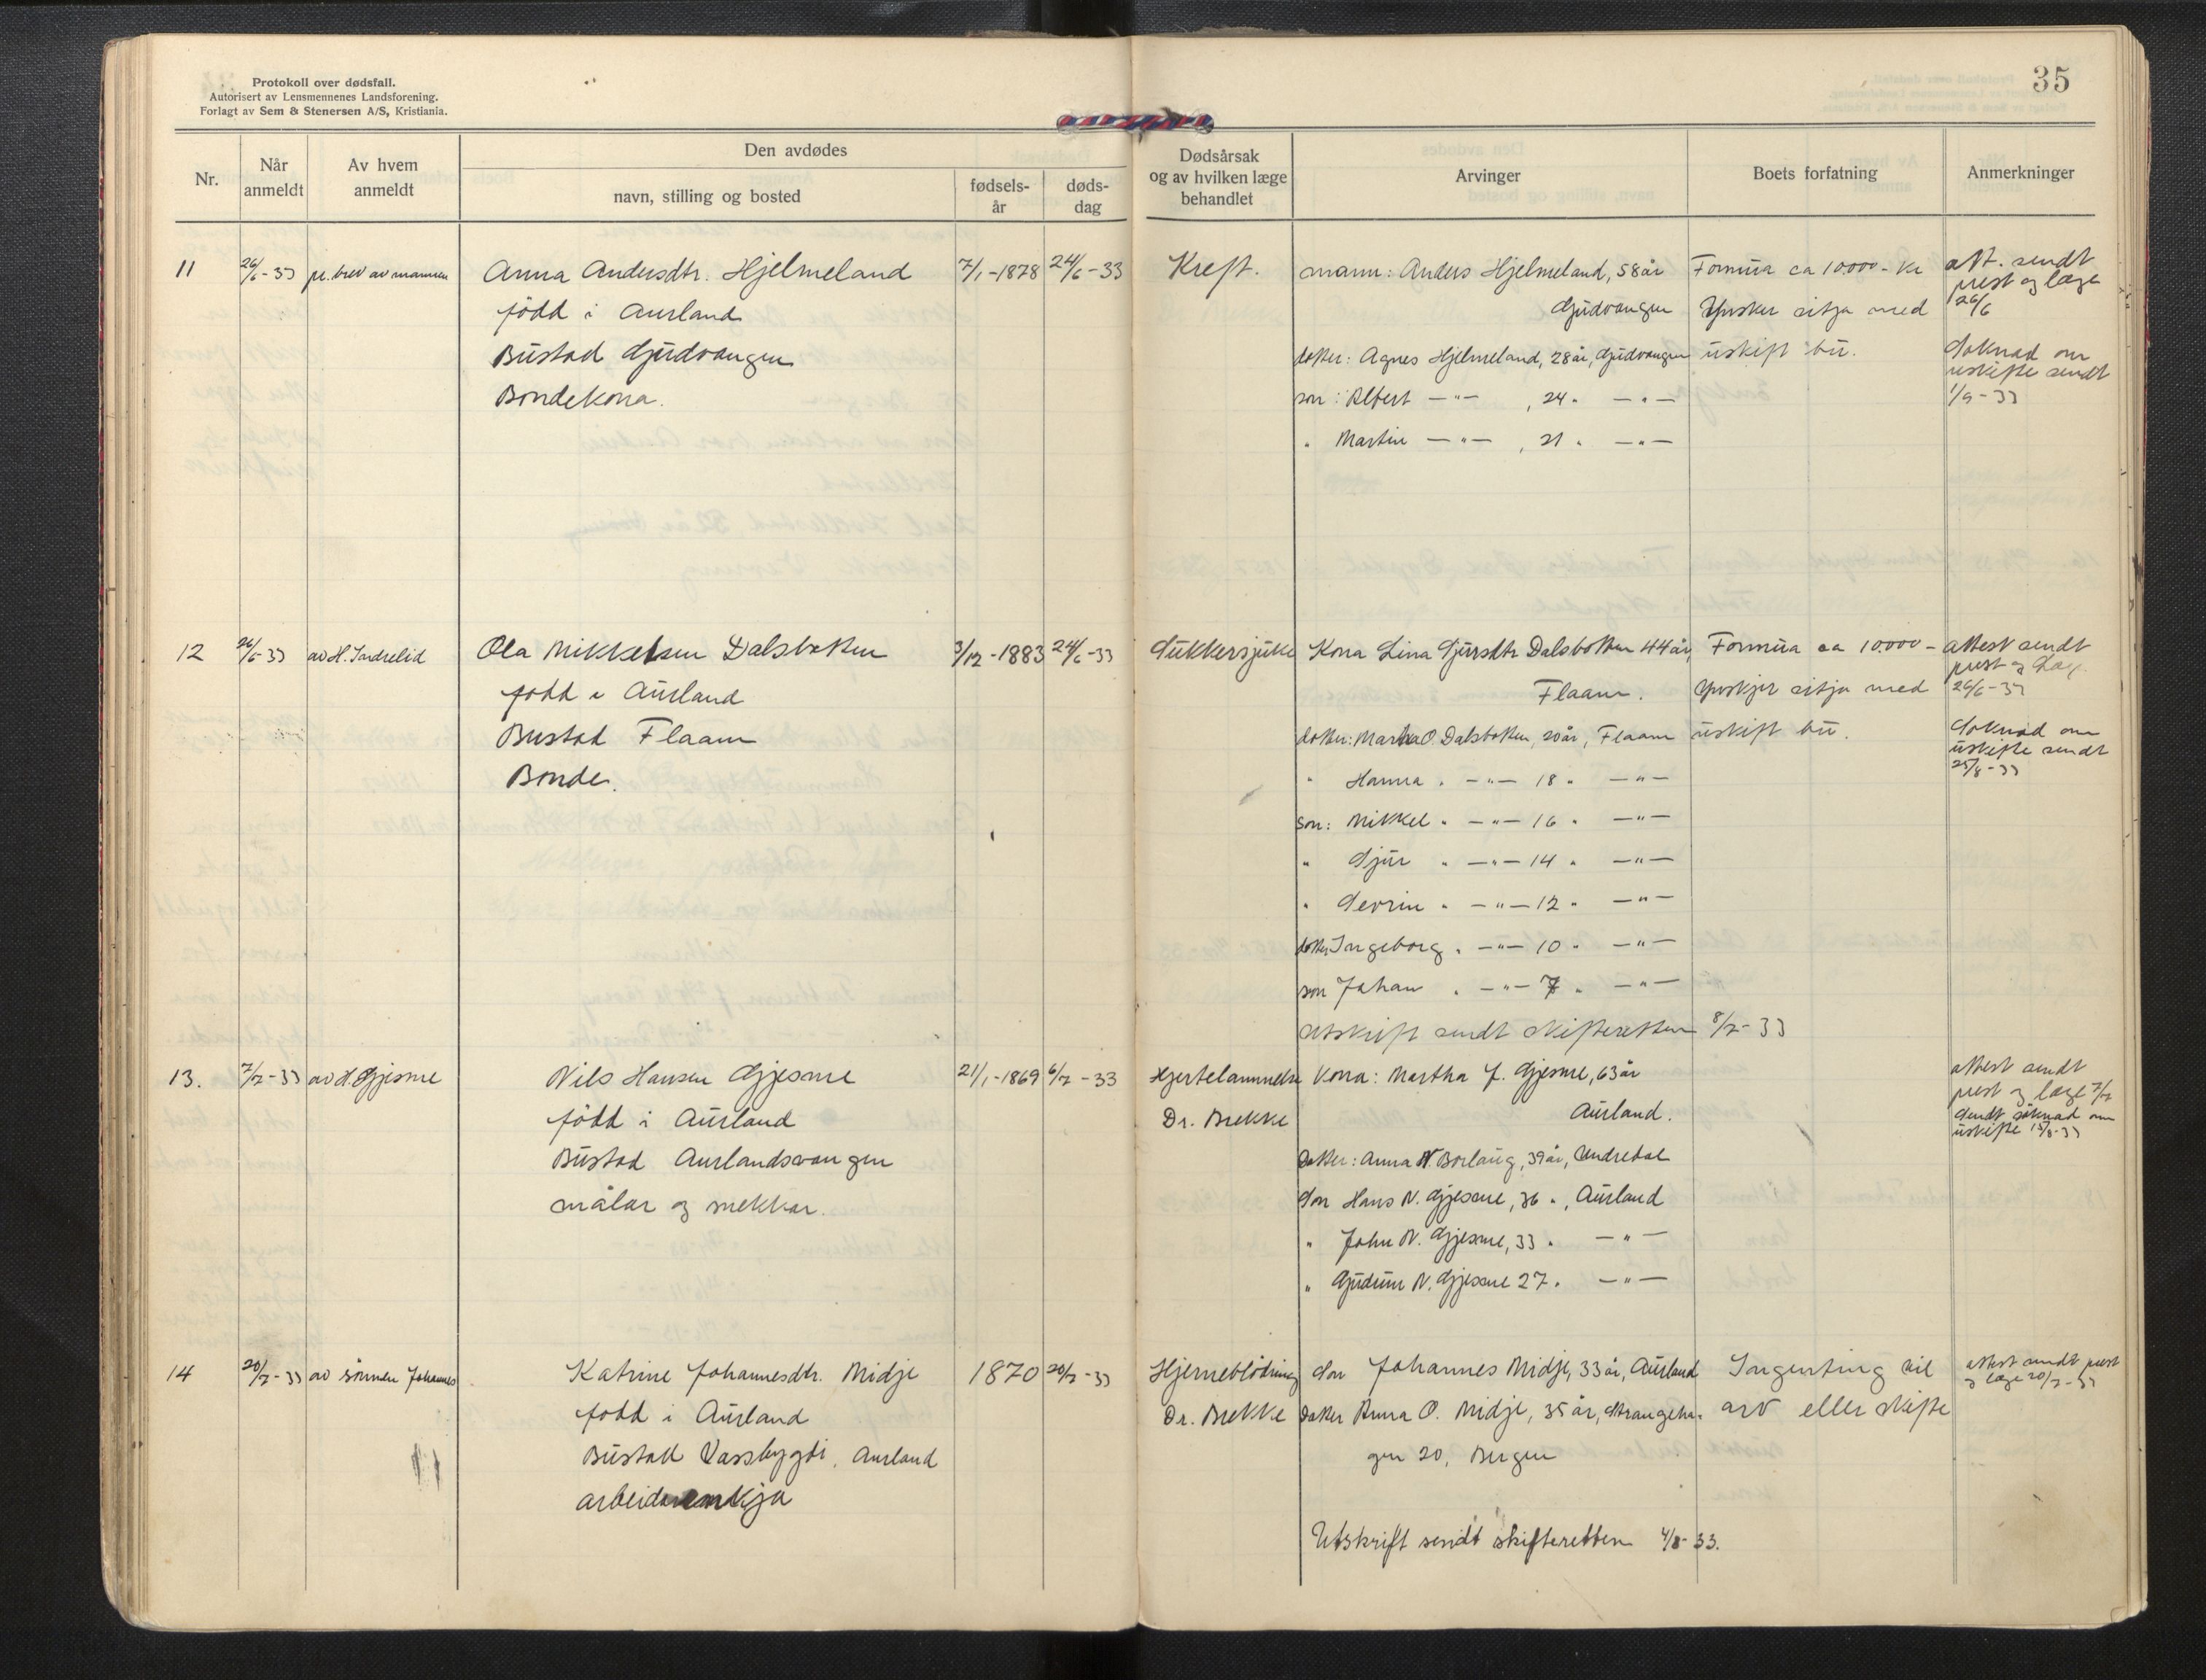 Protokoll over dødsfall.
Autorisert av Lensmennenes Landsforening.
Forlagt av Sem & Stenersen A/S, Kristiania.
35
Nr.
Når anmeldt
Av hvem anmeldt
Den avdødes
navn, stilling og bosted
fødsels-år
døds-dag
Dødsårsak og av hvilken læge behandlet
Arvinger
Boets forfatning
Anmerkninger
11 26/6-33 pr. brev av mannen
Anna Andersdtr. Hjelmeland 7/1-1878 24/6-33
född i Aurland
Bustad Gudvangen
Bondekona.
Kreft.
mann: Anders Hjelmeland, 58 år
Gudvangen
dotter: Agnes Hjelmeland, 28 år, Gudvangen
son: Albert —"— , 24 " —"—
" Martin —"— , 21 " —"—
Formua ca 10000- kr
Ynsker sitja med
uskift bu.
att. sendt
prest og læge
26/6
Soknad om
uskifte sendt
1/9-33
12 26/6-33 av H. Indrelid
Ola Mikkelsen Dalsbotten 3/12-1883 24/6-33
född i Aurland
Bustad Flaam
Bonde.
Sukkersjuke
Kona Lina Sjursdtr Dalsbotten 44 år,
Flaam.
dotter: Martha O. Dalsbotten, 20 år, Flaam
" Hanna " —"— 18 " —"—
son: Mikkel " —"— 16 " —"—
" Sjur " —"— 14 " —"—
" Severin " —"— 12 " —"—
dotter Ingeborg " —"— 10 " —"—
son Johan " —"— 7 " —"—
Utskrift sendt skifteretten 8/7-33
Formua ca 10.000-
Ynskjer sitja med
uskift bu.
attest sendt
prest og læg.
26/6-33
Soknad om
uskifte sendt
25/8-33
13. 7/7-33 av H. Gjesme
Nils Hansen Gjesme 21/1-1869 6/7-33
född i Aurland
Bustad Aurlandsvangen
målar og snekkar.
Hjertelammelse
Dr. Brekke
Kona: Martha J. Gjesme, 63 år
Aurland.
Dotter: Anna N. Borlaug, 39 år, Undredal
Son Hans N. Gjesme, 36 ", Aurland
" John N. Gjesme, 33 " —"—
" Gudum N. Gjesme 27 " —"—
attest sendt
prest og læge 7/7
Sendt söknad om
uskifte 15/8-33
14 20/7-33 av sönnen Johannes
Katrine Johannesdtr. Midje 1870 20/7-33
född i Aurland
Bustad Vassbygdi, Aurland
arbeidarenkja
Hjerneblödning
Dr. Brekke
Son Johannes Midje, 33 år, Aurland
Dotter Anna O. Midje, 35 år, Strangeha-
gen 20, Bergen
Utskrift sendt skifteretten 4/8-33.
Ingenting til
arv eller skifte
attest sendt prest
og læge 20/7-33